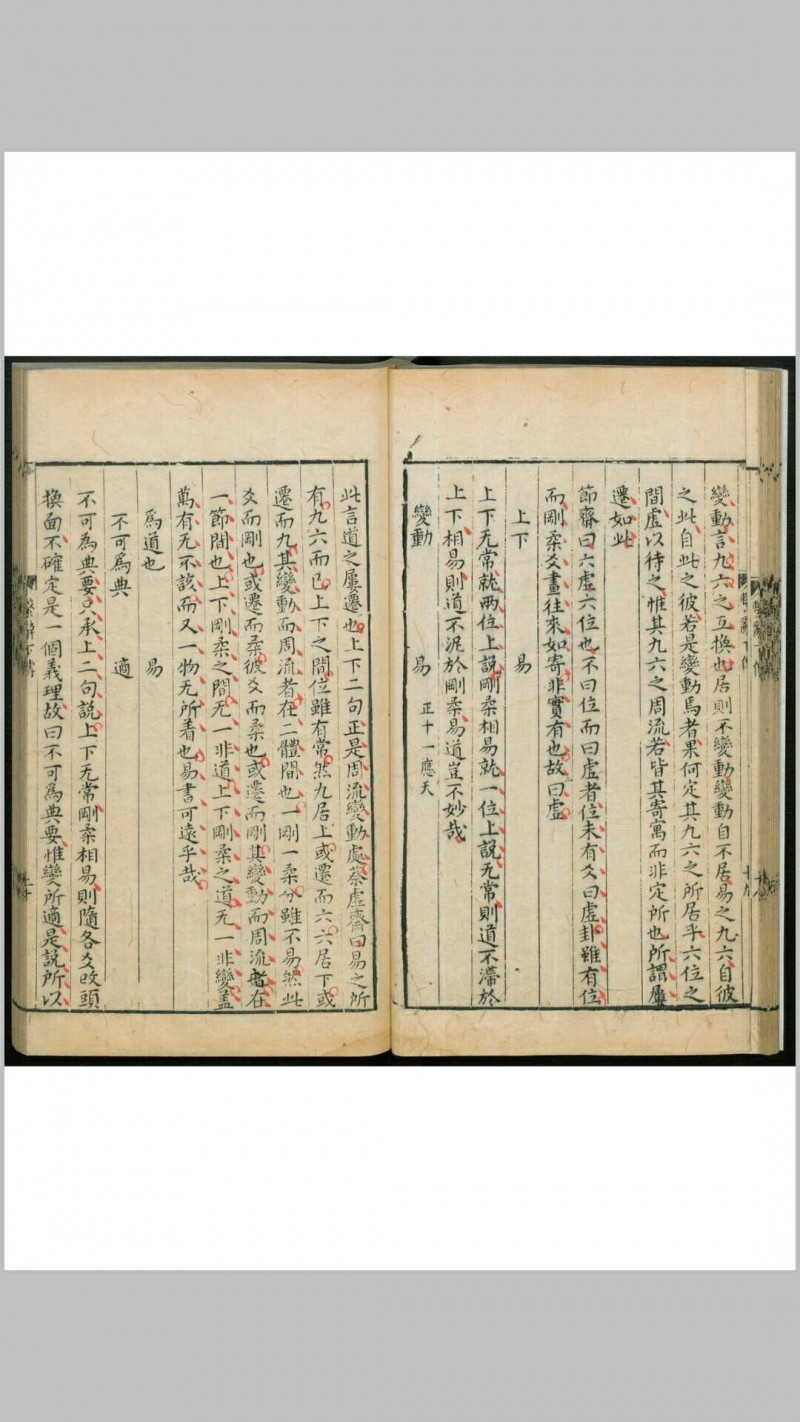 變動言九六之互換也居則不變動變動自不居易之九六自彼
之此自此之彼若是變動焉者果何定其九六之所居乎六位之
間虛以待之惟其九六之周流若皆其寄寓而非定所也所謂屢
遷如此
節齋曰六虛六位也不曰位而曰虛者位未有爻曰虛卦雖有位
而剛柔爻畫往來如寄非實有也故曰虛
上下 易
上下无常就兩位上說剛柔相易就一位上說无常則道不滯於
上下相易則道不泥於剛柔易道豈不妙哉
變動 易 正十一應天
此言道之屢遷也上下二句正是周流變動處蔡虛齋曰易之所
有九六而已上下之間位雖有常然九居上或遷而六六居下或
遷而九其變動而周流者在二體間也一剛一柔分雖不易然此
爻而剛也或遷而柔彼爻而柔也或遷而剛其變動而周流者在
一節間也上下剛柔之間无一非道上下剛柔之道无一非變蓋
萬有无不該而又一物无所着也易書可遠乎哉
為道也 易
不可為典 適
不可為典要只承上二句說上下无常剛柔相易則隨各爻改頭
換面不確定是一個義理故曰不可為典要惟變所適是說所以
繫辭下傳